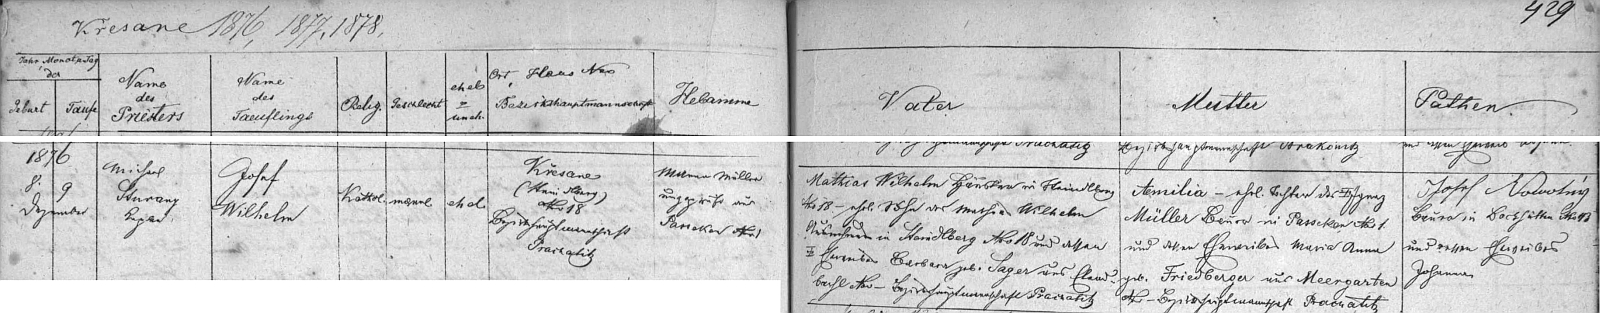 Křesane 1876, 1877, 1878.
429
Jahr, Monat u Tag
der
Geburt
Taufe
Name
des
Priesters
Name
des
Taeuflings
Relig.
Geschlecht
ehel.
o
uneh.
Ort, Haus Nro
Bezirkshauptmannschaft
Hebamme
Vater
Mutter
Pathen
1876
8. 9
Dezember
Michael
Josef
Wilhelm
Kathol.
männl.
ehel.
Křesane
(Haindlberg)
Nro 18
Bezirkshauptmannschaft
Prachatitz
Müller
ungeprüft aus
Passeken Nro 1
Bezirkshauptmannschaft
Mathias Wilhelm Häusler in Haindlberg
Nro 18 – ehel. Sohn des Mathias Wilhelm
in Haindlberg Nro 18 und dessen
Eheweibes Barbara geb. Sager aus
Nro – Bezirkshauptmannschaft Prachatitz
Amilia – ehel. Tochter des Ignaz
Müller Bauer in Passeken Nro 1.
und dessen Eheweibes Maria Anna
geb. Friedberger aus Meergarten
Nro – Bezirkshauptmannschaft Prachatitz
Josef Nowotny
Bauer in
und dessen Eheweib
Johanna